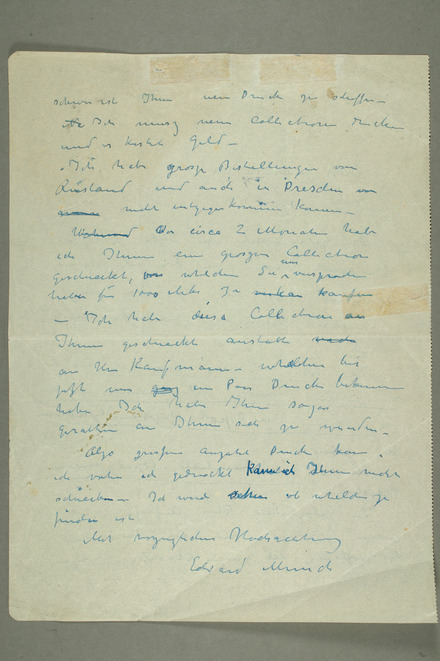 schwer ist Ihnen neu Druck zu schaffen –
Ich muss neue Collectionen drucken
und es kostet Geld –
Ich habe grosze Bestellungen von
Rusland und auch in Dresden
nicht entgegenkommen können –
Vor circa 2 Monaten habe
ich Ihnen eine groszen Collection
geschickt, von whelchen Sie uns versprachen
haben für 1000 Mks zu kaufen
– Ich habe diese Collection an
Ihnen geschickt anstatt
an Kaufmann – whelchen bis
jetzt nur ein Paar Drucke bekommen
haben Ich habe Ihm sogar
gerathen an Ihnen sich zu wenden –
Also groszen anzahl Drucke kan
ich gedruckt kann ich Ihnen nicht
schicken – Ich werde sehen ob whelche zu
finden ist
Mit vorzüglicher Hochachtung
Edvard Munch